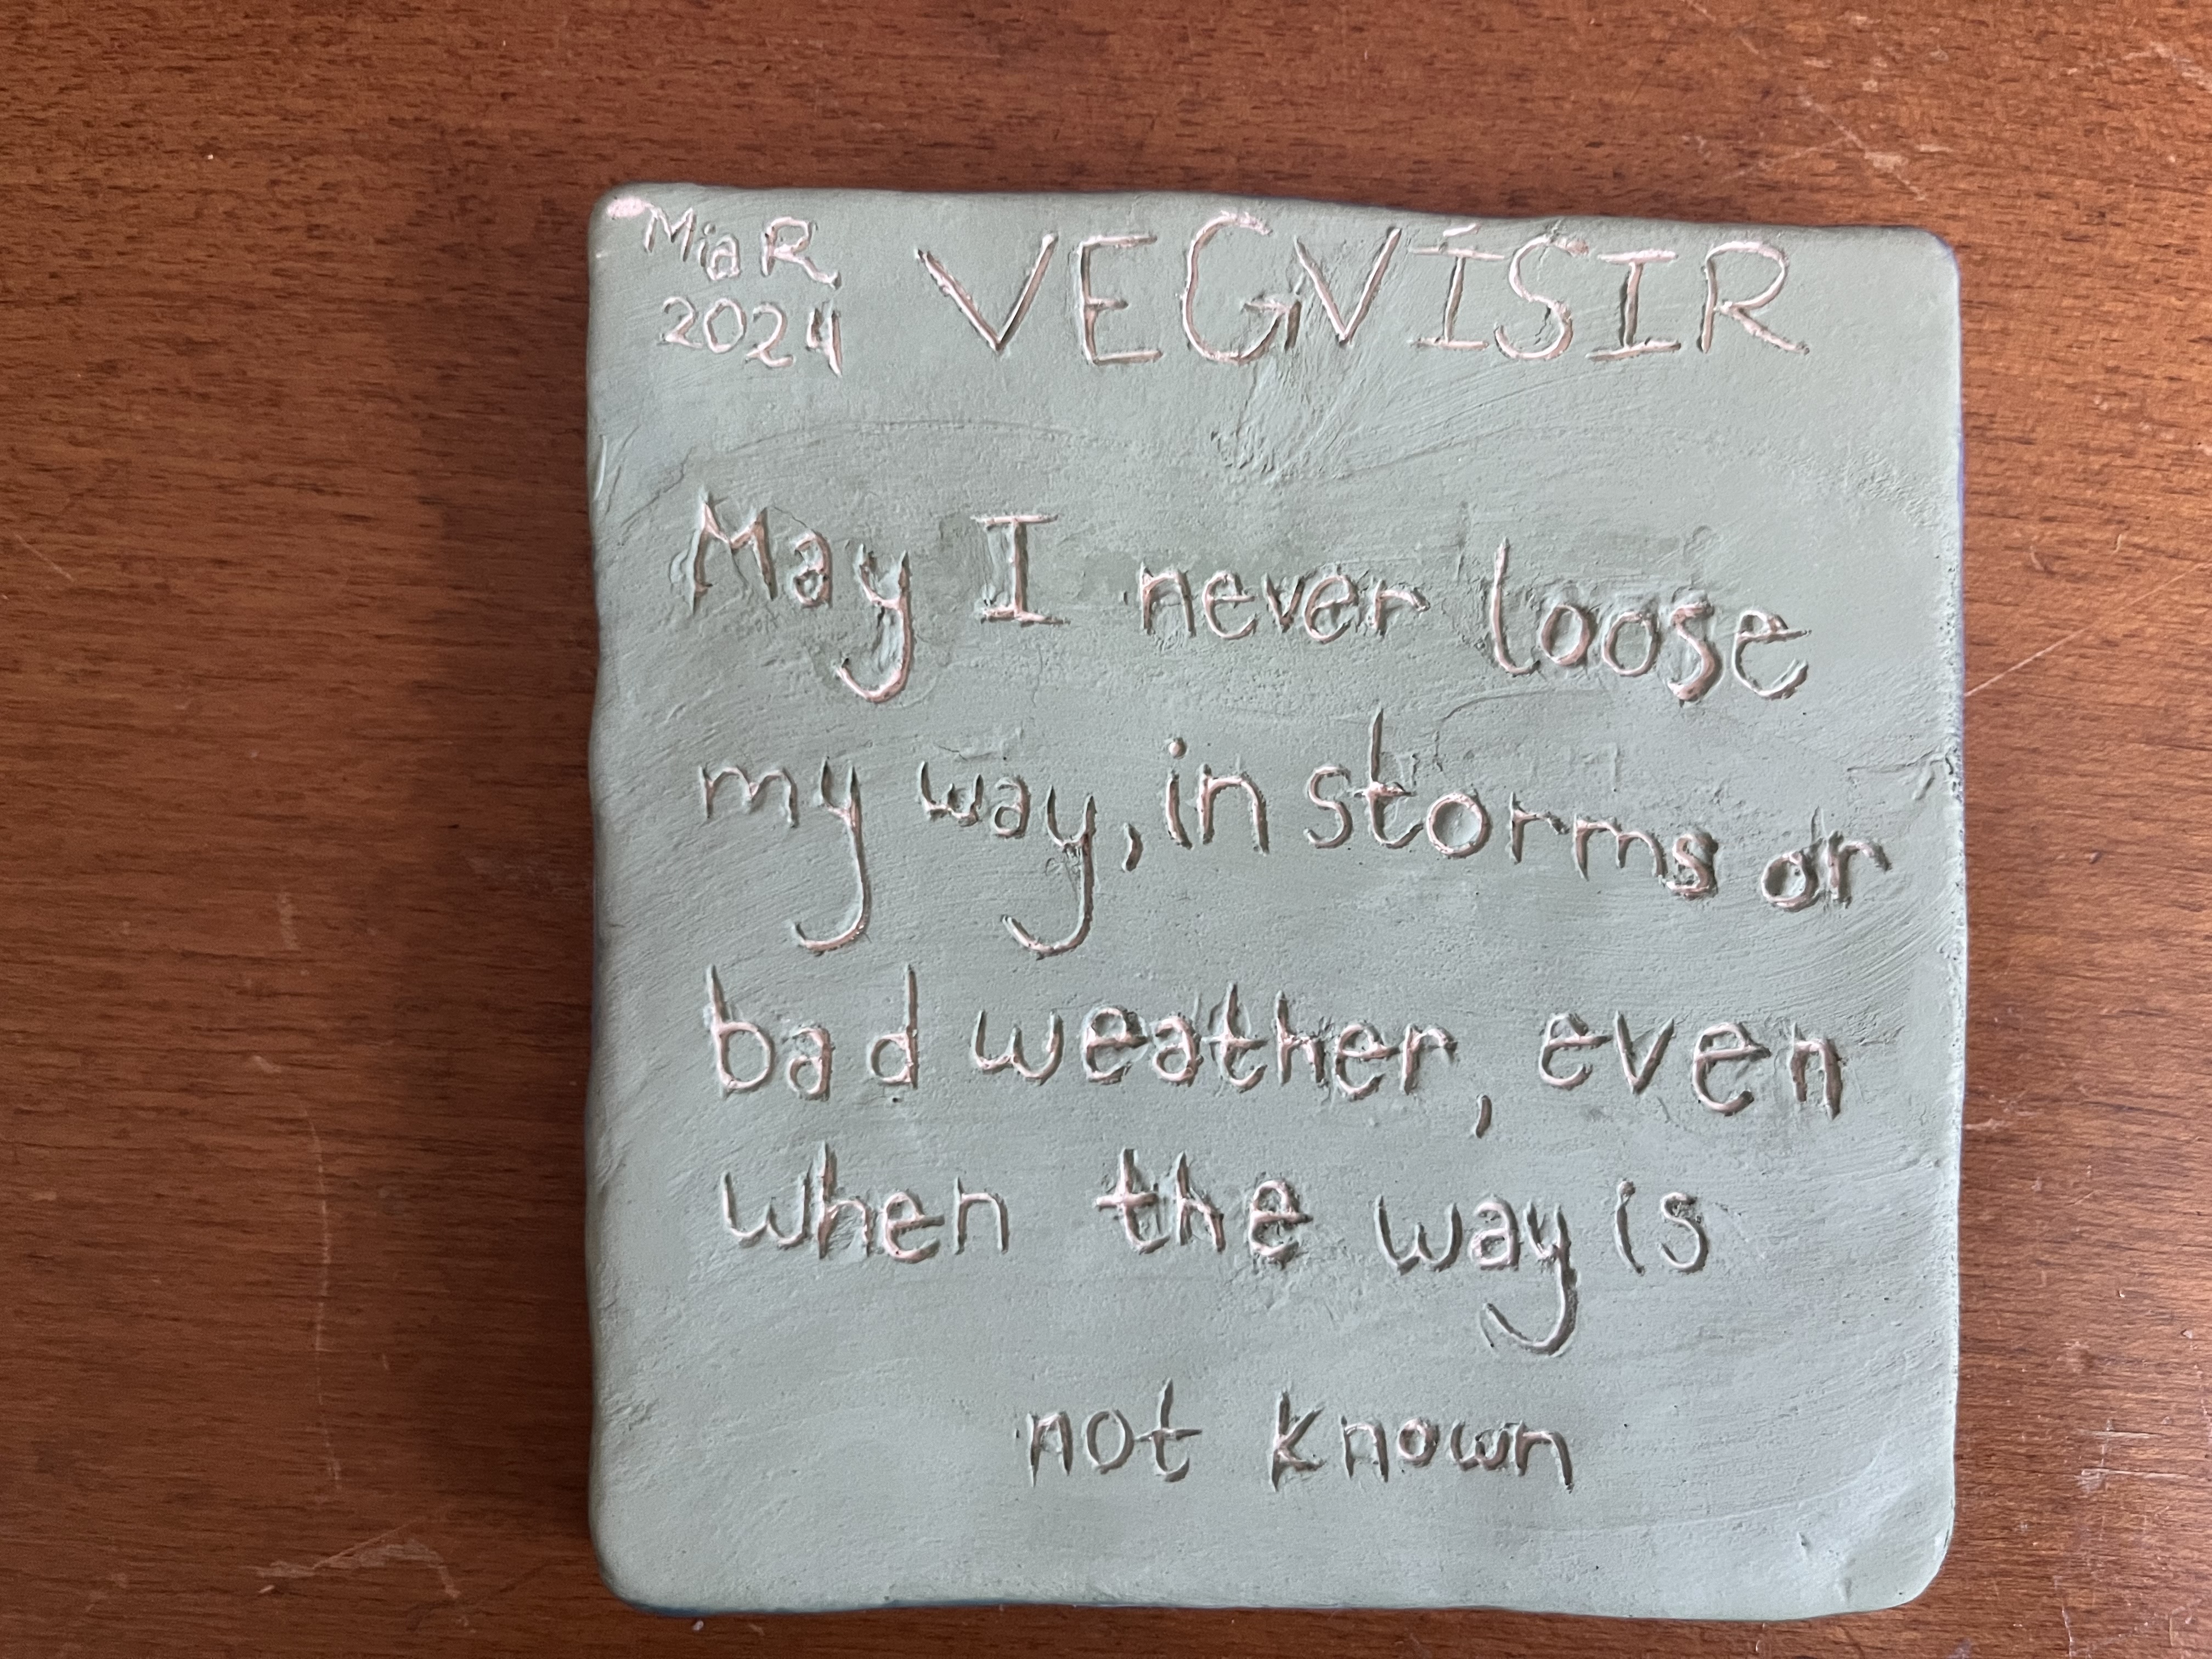 MiaR
2024
VEGVÍSIR
May I never loose
my way, in storms or
bad weather, even
when the way is
not known